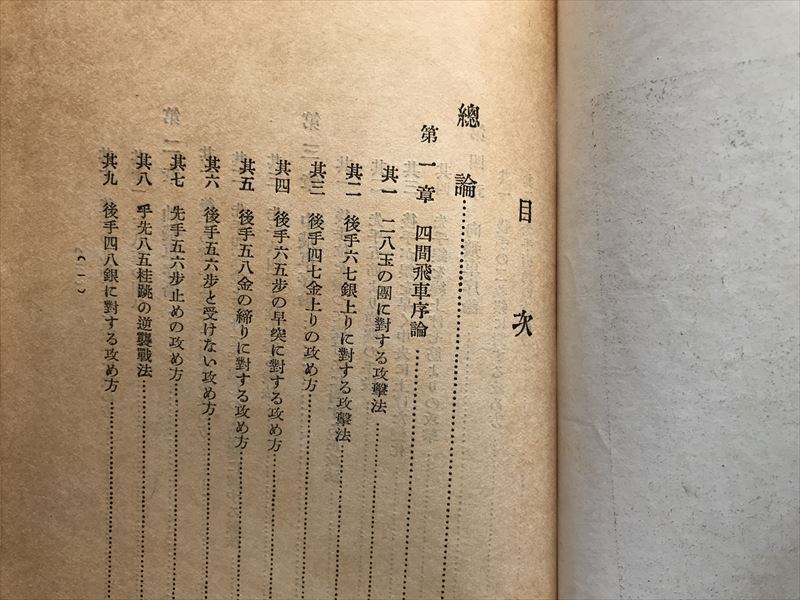 目次
總論
第一章 四間飛車序論
其一 二八玉の圍に對する攻擊法
其二 後手六七銀上りに對する攻擊法
其三 後手四七金上りの攻め方
其四 後手六五步の早突に對する攻め方
其五 後手五八金の締りに對する攻め方
其六 後手五六步と受けない攻め方
其七 先手五六步止めの攻め方
其八 手先八五桂跳の逆襲戰法
其九 後手四八銀に對する攻め方
(一)